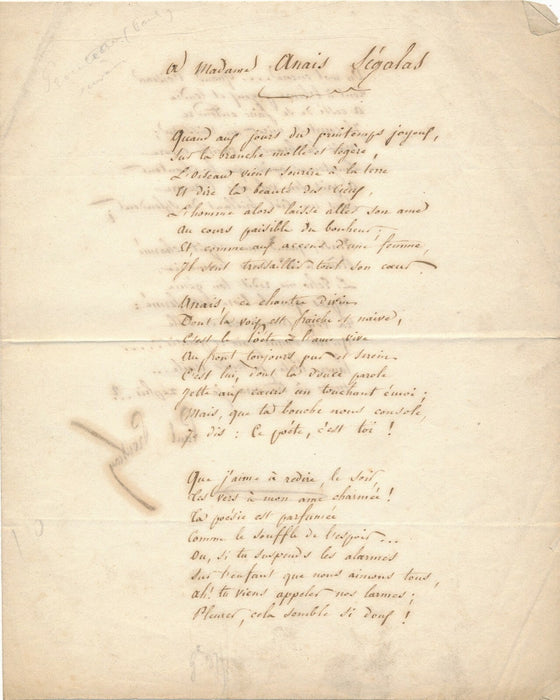 A Madame Anaïs Ségalas
Quand aux jours du printemps joyeux,
Sur la branche molle et légère,
L'oiseau vient sourire à la terre
Et dire la beauté des cieux,
L'homme alors laisse aller son ame
Au cours paisible du bonheur;
Et, comme aux accens d'une femme,
Il sent tressaillir tout son cœur.
Anaïs, ce chantre divin
Dont la voix est fraîche et naïve,
C'est le Poète à l'ame vive
Au front toujours pur et serein
C'est lui, dont la douce parole
Jette aux cœurs un touchant émoi;
Mais, que ta bouche nous console,
Je dis: Ce poète, c'est toi!
Que j'aime à redire, le soir
Tes vers à mon ame charmée!
Ta poésie est parfumée
Comme le souffle de l'espoir...
Ou, si tu suspends les alarmes
Sur l'enfant que nous aimons tous,
Ah! tu viens appeler nos larmes;
Pleurer, cela semble si doux!